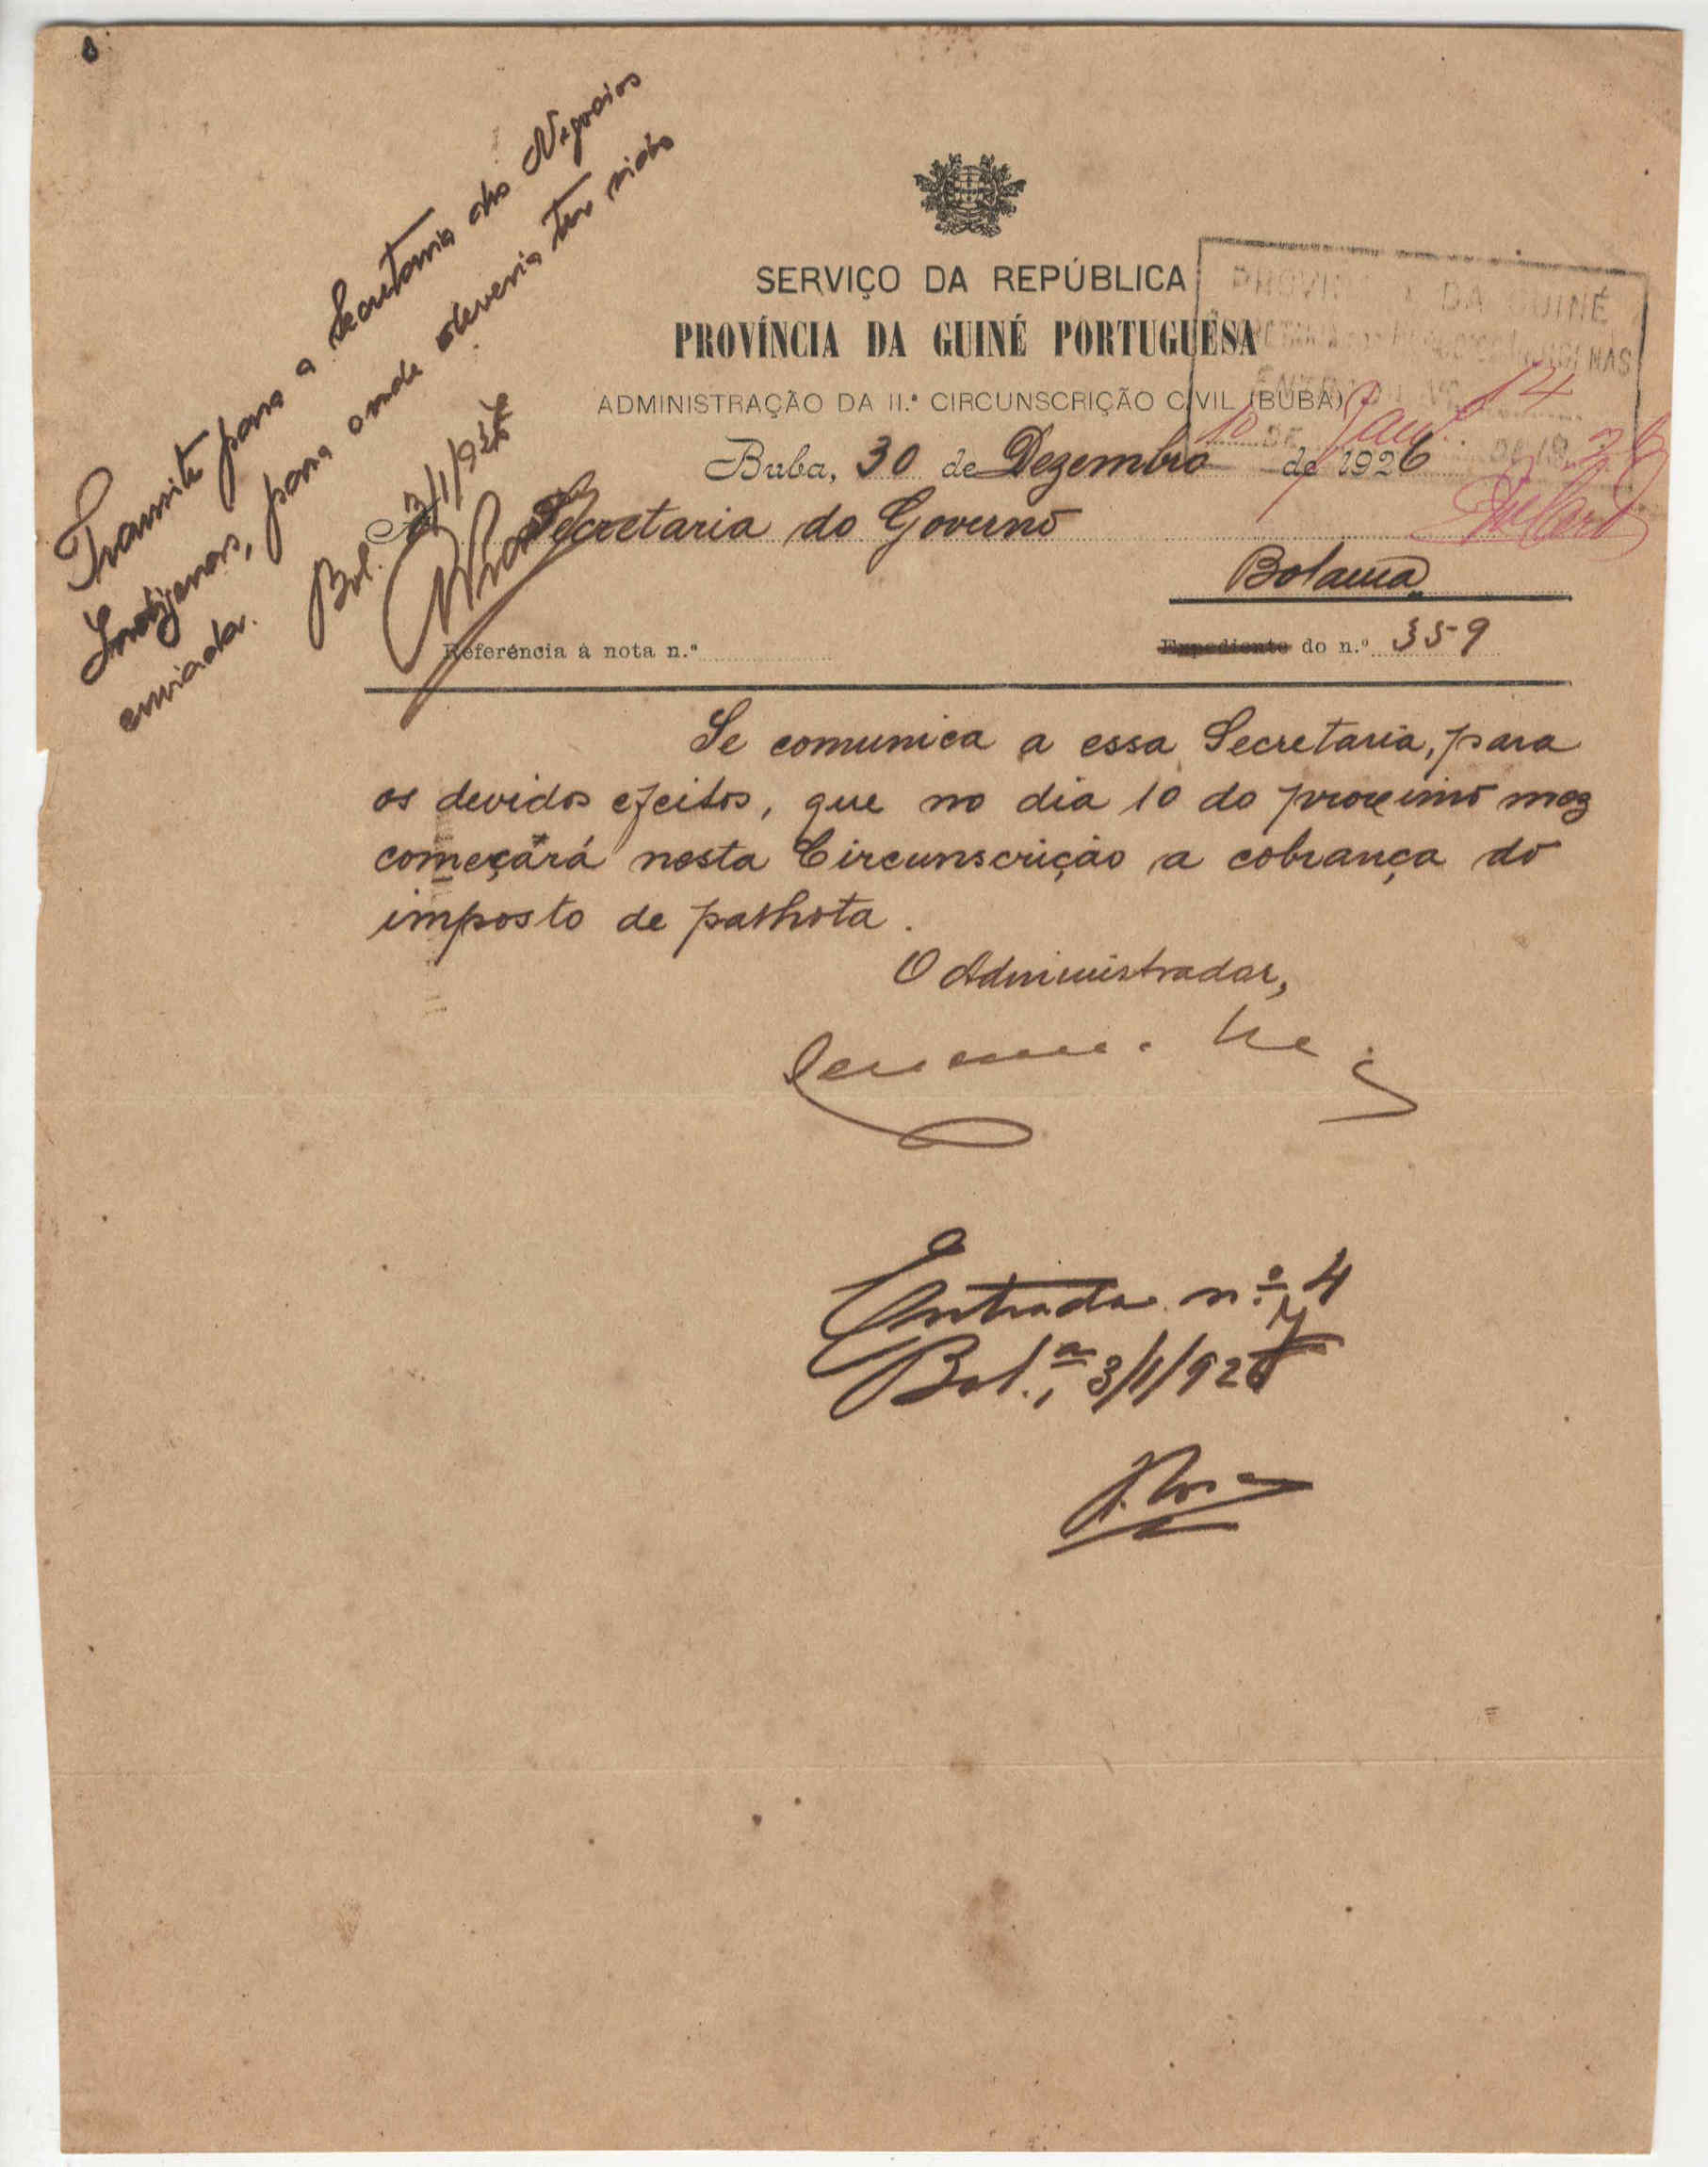 Transite para a Secretaria dos Negocios
Indigenas, para onde deveria ter sido
enviada.
Bol. 3/1/927
SERVIÇO DA REPÚBLICA
PROVÍNCIA DA GUINÉ PORTUGUESA
ADMINISTRAÇÃO DA II.ª CIRCUNSCRIÇÃO CIVIL (BUBA)
PROVINCIA DA GUINÉ
14
10 DE Jan.º DE 19
Buba, 30 de Dezembro de 1926
Á Secretaria do Governo
Bolama
Referência á nota n.º
Expediente do n.º 359
Se comunica a essa Secretaria, para
os devidos efeitos, que no dia 10 do proximo mez
começará nesta Circunscrição a cobrança do
imposto de palhota.
O Administrador,
Entrada n.º 4
Bol.ª, 3/1/927